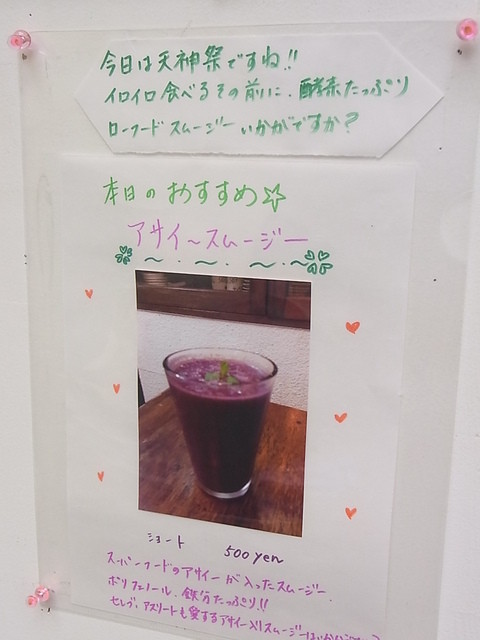 今日は天神祭ですね!!
イロイロ食べるその前に、酵素たっぷり
ローフードスムージーいかがですか？
本日のおすすめ☆
アサイースムージー
ショート 500yen
スーパーフードのアサイーが入ったスムージー。
ポリフェノール、鉄分たっぷり!!
セレブ、アスリートも愛するアサイー入りスムージーはいかが